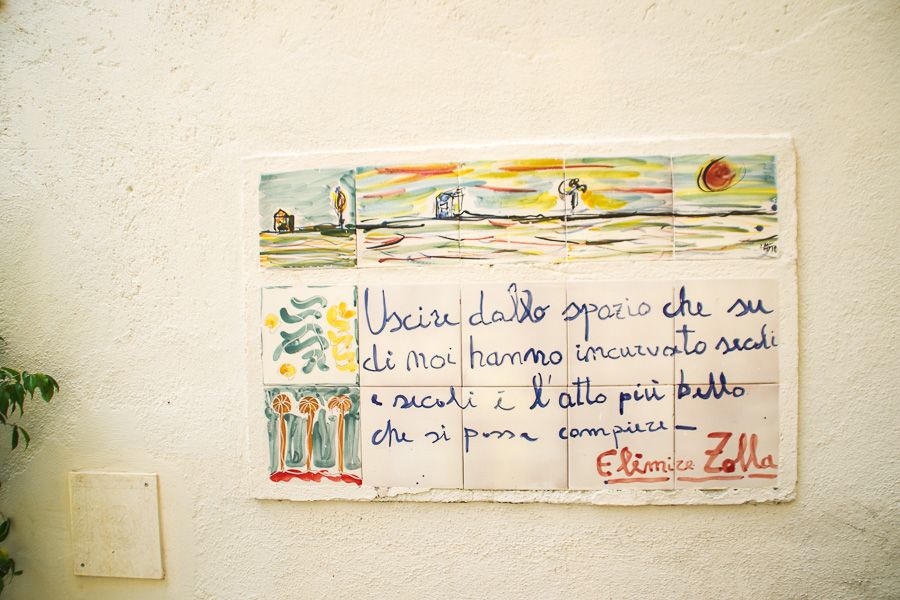 Uscire dallo spazio che su
di noi hanno incurvato secoli
e secoli è l'atto più bello
che si possa compiere —
Elémire Zolla